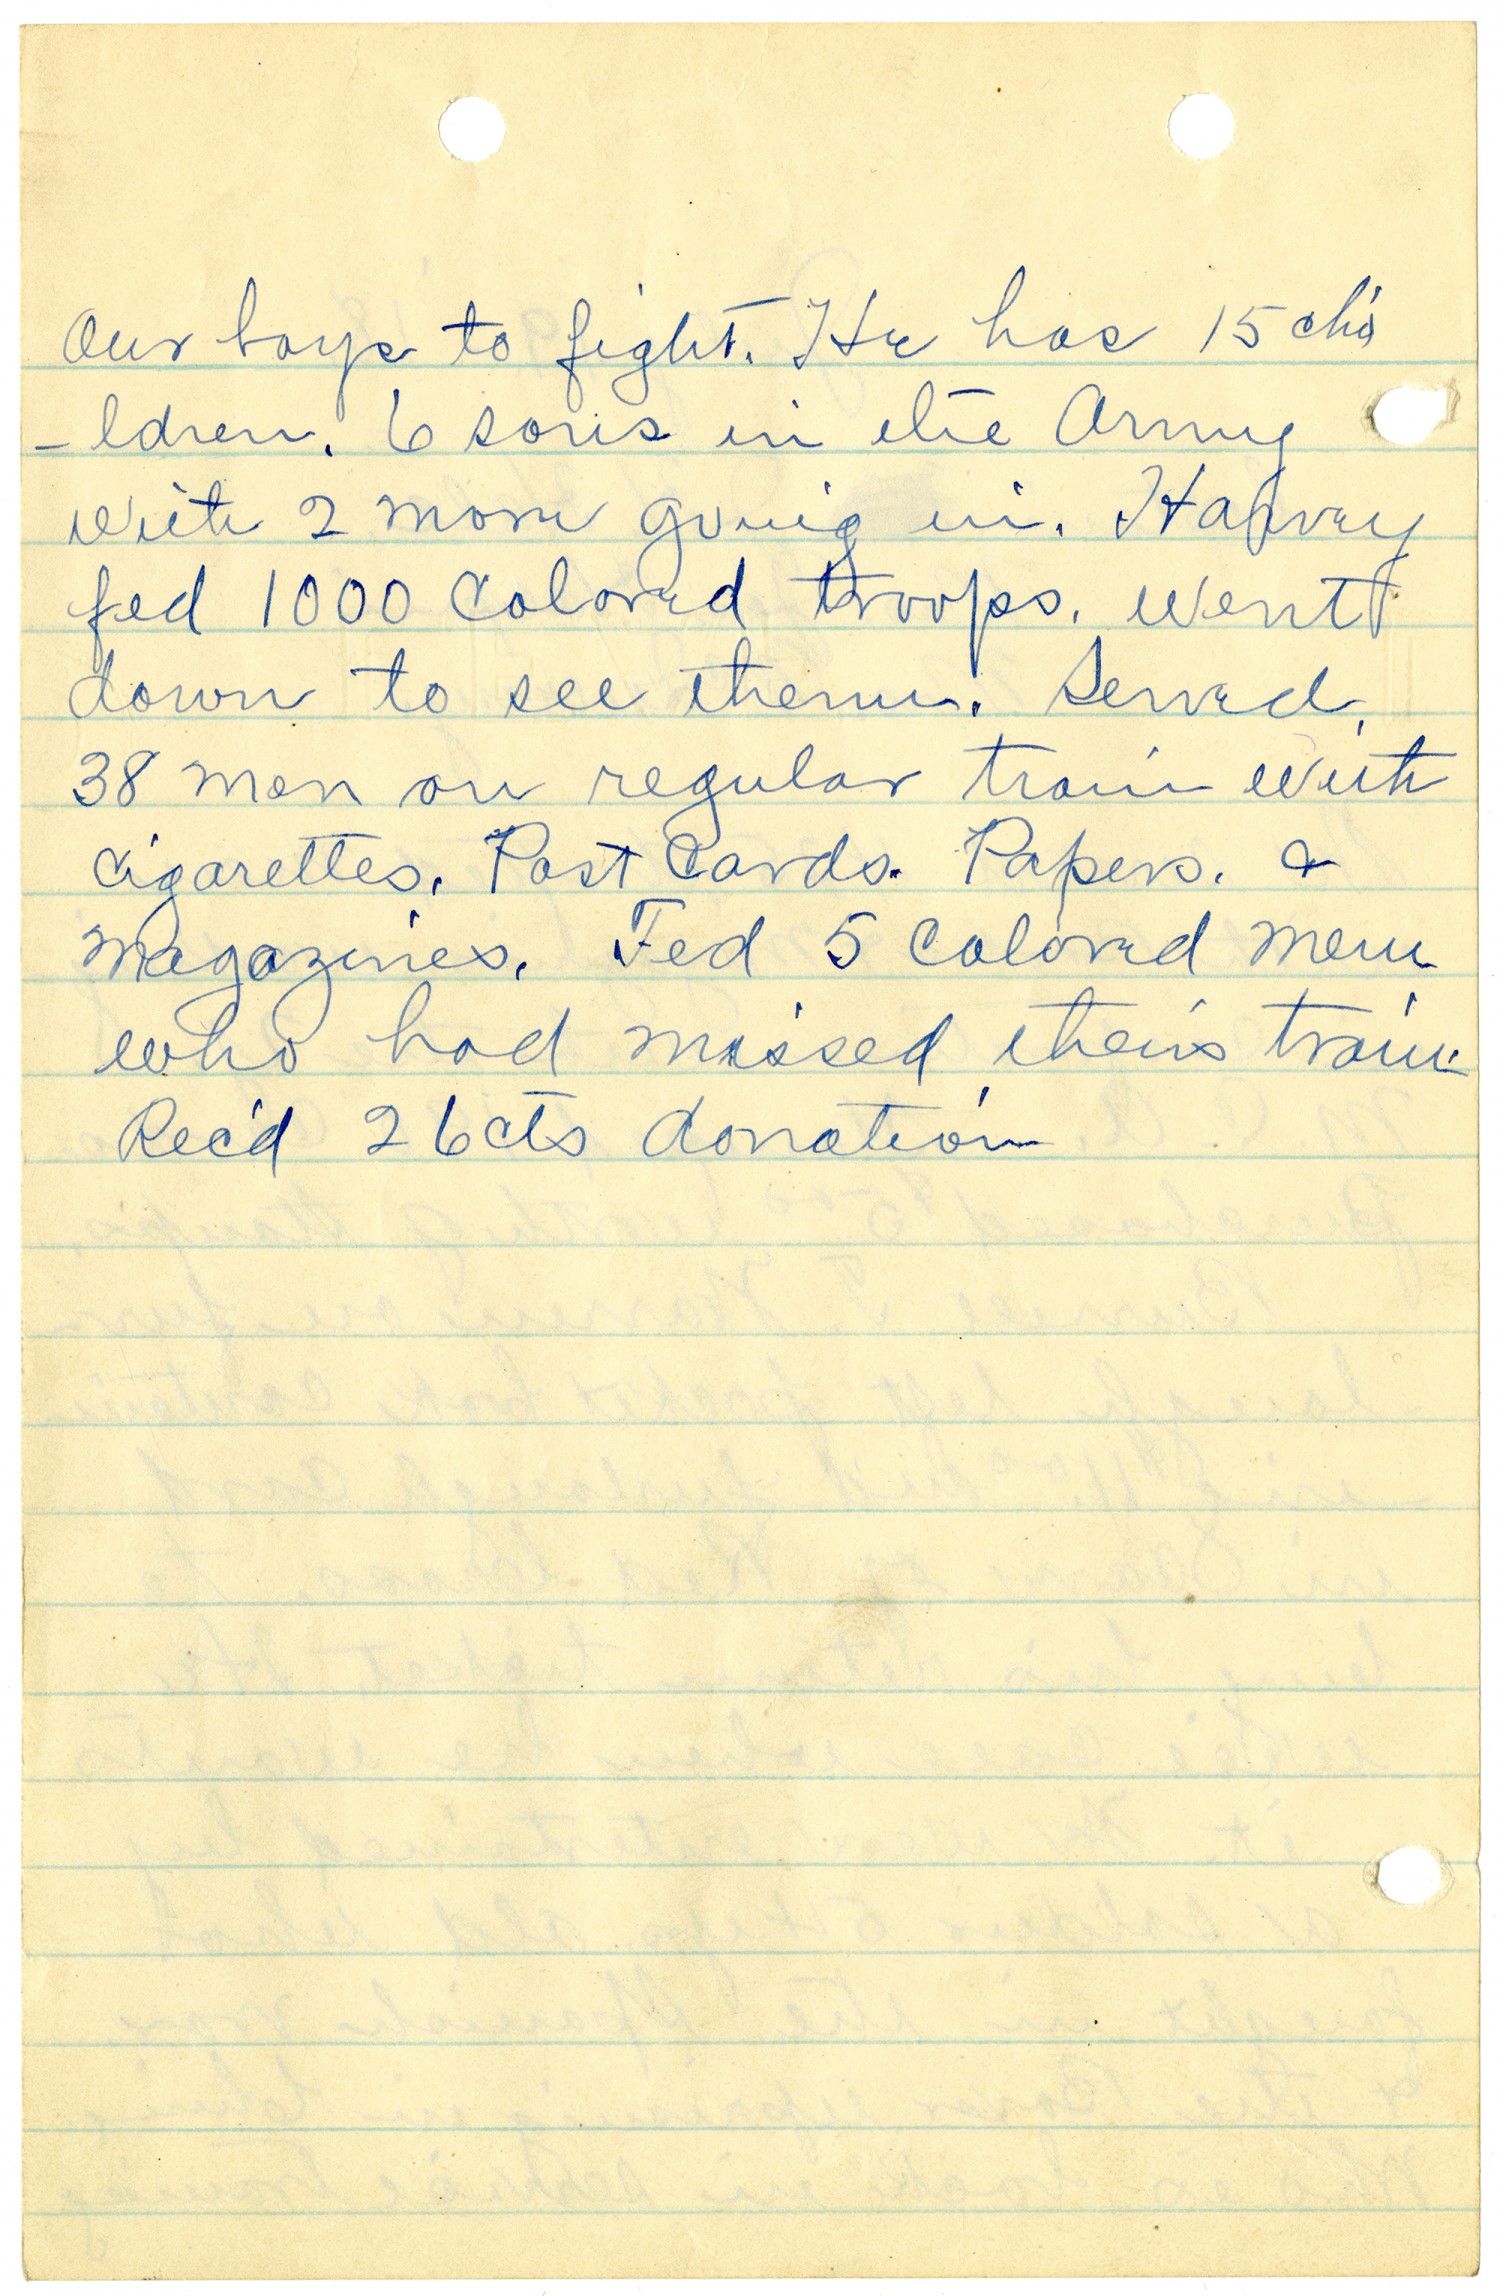 Our boys to fight. He has 15 chi
-ldren. 6 sons in the Army
with 2 more going in. Harvey
fed 1000 Colored troops. Went
down to see them. Served
38 men on regular train with
Cigarettes. Post Cards. Papers. &
Magazines. Fed 5 Colored men
who had missed their train
Rec'd 26cts donation